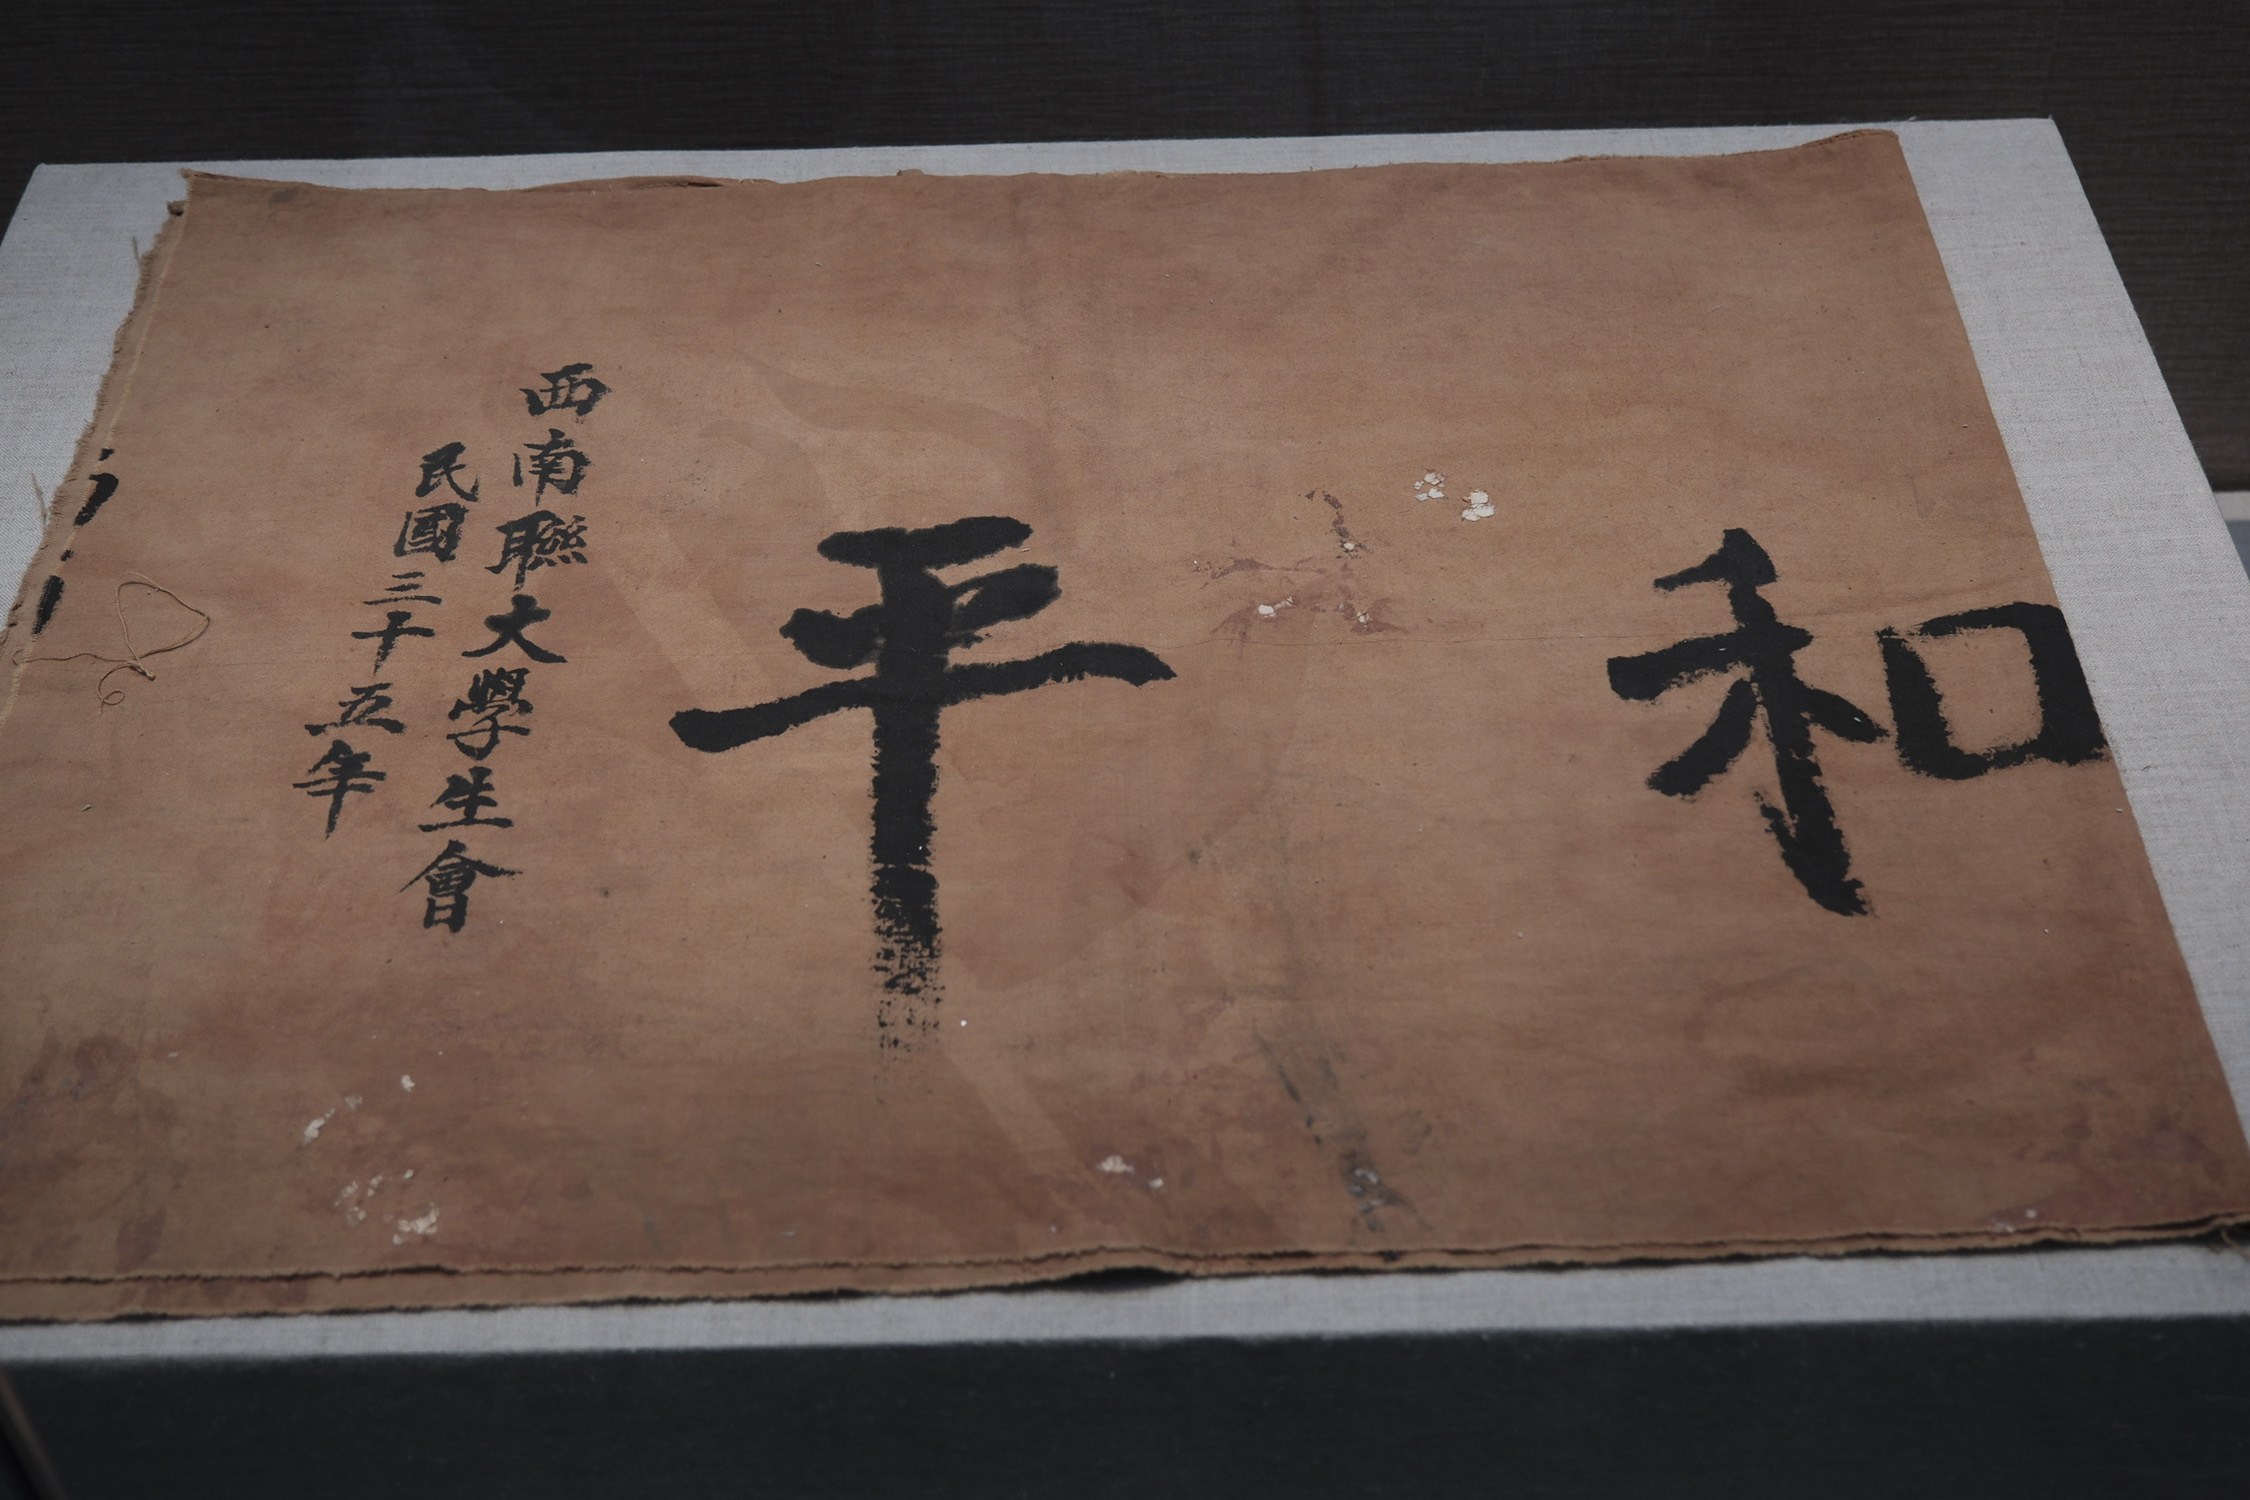 和平
西南聯大學生會
民國三十五年